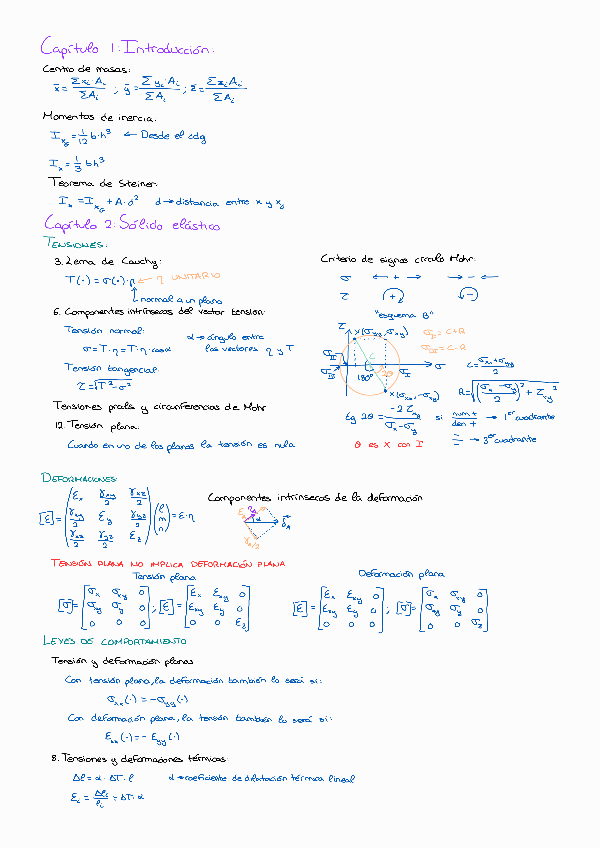 Capítulo 1: Introducción:
Centro de masas:
x̄ = Σxᵢ·Aᵢ / ΣAᵢ ; ȳ = Σyᵢ·Aᵢ / ΣAᵢ ; z̄ = Σzᵢ·Aᵢ / ΣAᵢ
Momentos de inercia:
I_xG = 1/12 b·h³ ← Desde el cdg
Iₓ = 1/3 bh³
Teorema de Steiner:
Iₓ = I_xG + A·d² d → distancia entre x y x_G
Capítulo 2: Sólido elástico
TENSIONES:
3. Lema de Cauchy:
T(·) = σ(·)·η ← η UNITARIO
normal a un plano
6. Componentes intrínsecas del vector tensión:
Tensión normal: α → ángulo entre
σ = T·η = T·η·cosα los vectores η y T
Tensión tangencial:
τ = √(T² - σ²)
Tensiones prals y circunferencias de Mohr
12. Tensión plana:
Cuando en uno de los planos la tensión es nula
Criterio de signos círculo Mohr:
σ ← + → → - ←
τ (+) (-)
"esquema B"
τ Y(σyy, σxy) σ_I = C+R
σ_II = C-R
σ_II C σ C = (σxx + σyy) / 2
σ_III 180° 2θ σ_I
X(σxx, -σxy) R = √(((σx - σy) / 2)² + τxy²)
tg 2θ = -2τxy / (σx - σy) si num + / den + → 1er cuadrante
- / - → 3er cuadrante
θ es X con I
DEFORMACIONES:
[ε] = (εx γxy/2 γxz/2 (l
γxy/2 εy γyz/2 m = ε·η
γxz/2 γyz/2 εz) n)
Componentes intrínsecos de la deformación
TENSIÓN PLANA NO IMPLICA DEFORMACIÓN PLANA
Tensión plana Deformación plana
[σ] = [σx σxy 0 ; [ε] = [εx εxy 0 [ε] = [εx εxy 0 ; [σ] = [σx σxy 0
σxy σy 0 εxy εy 0 εxy εy 0 σxy σy 0
0 0 0] 0 0 εz] 0 0 0] 0 0 σz]
LEYES DE COMPORTAMIENTO
Tensión y deformación planas
Con tensión plana, la deformación también lo será si:
σxx(·) = -σyy(·)
Con deformación plana, la tensión también lo será si:
εxx(·) = -εyy(·)
8. Tensiones y deformaciones térmicas:
Δl = α·ΔT·l α → coeficiente de dilatación térmica lineal
εᵢ = Δlᵢ / lᵢ = ΔT·α